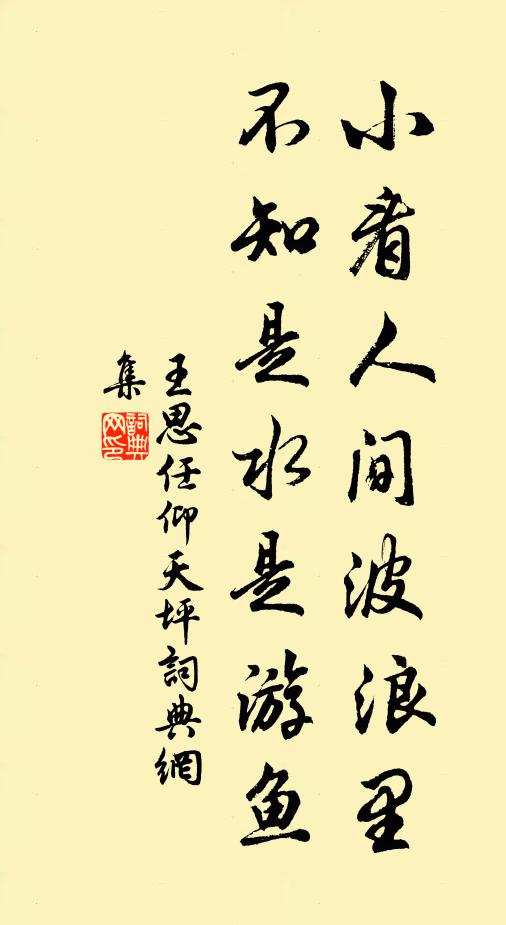 小看人间波浪里
不知是水是游鱼
王思任仰天坪詞典網
集
詞典网印